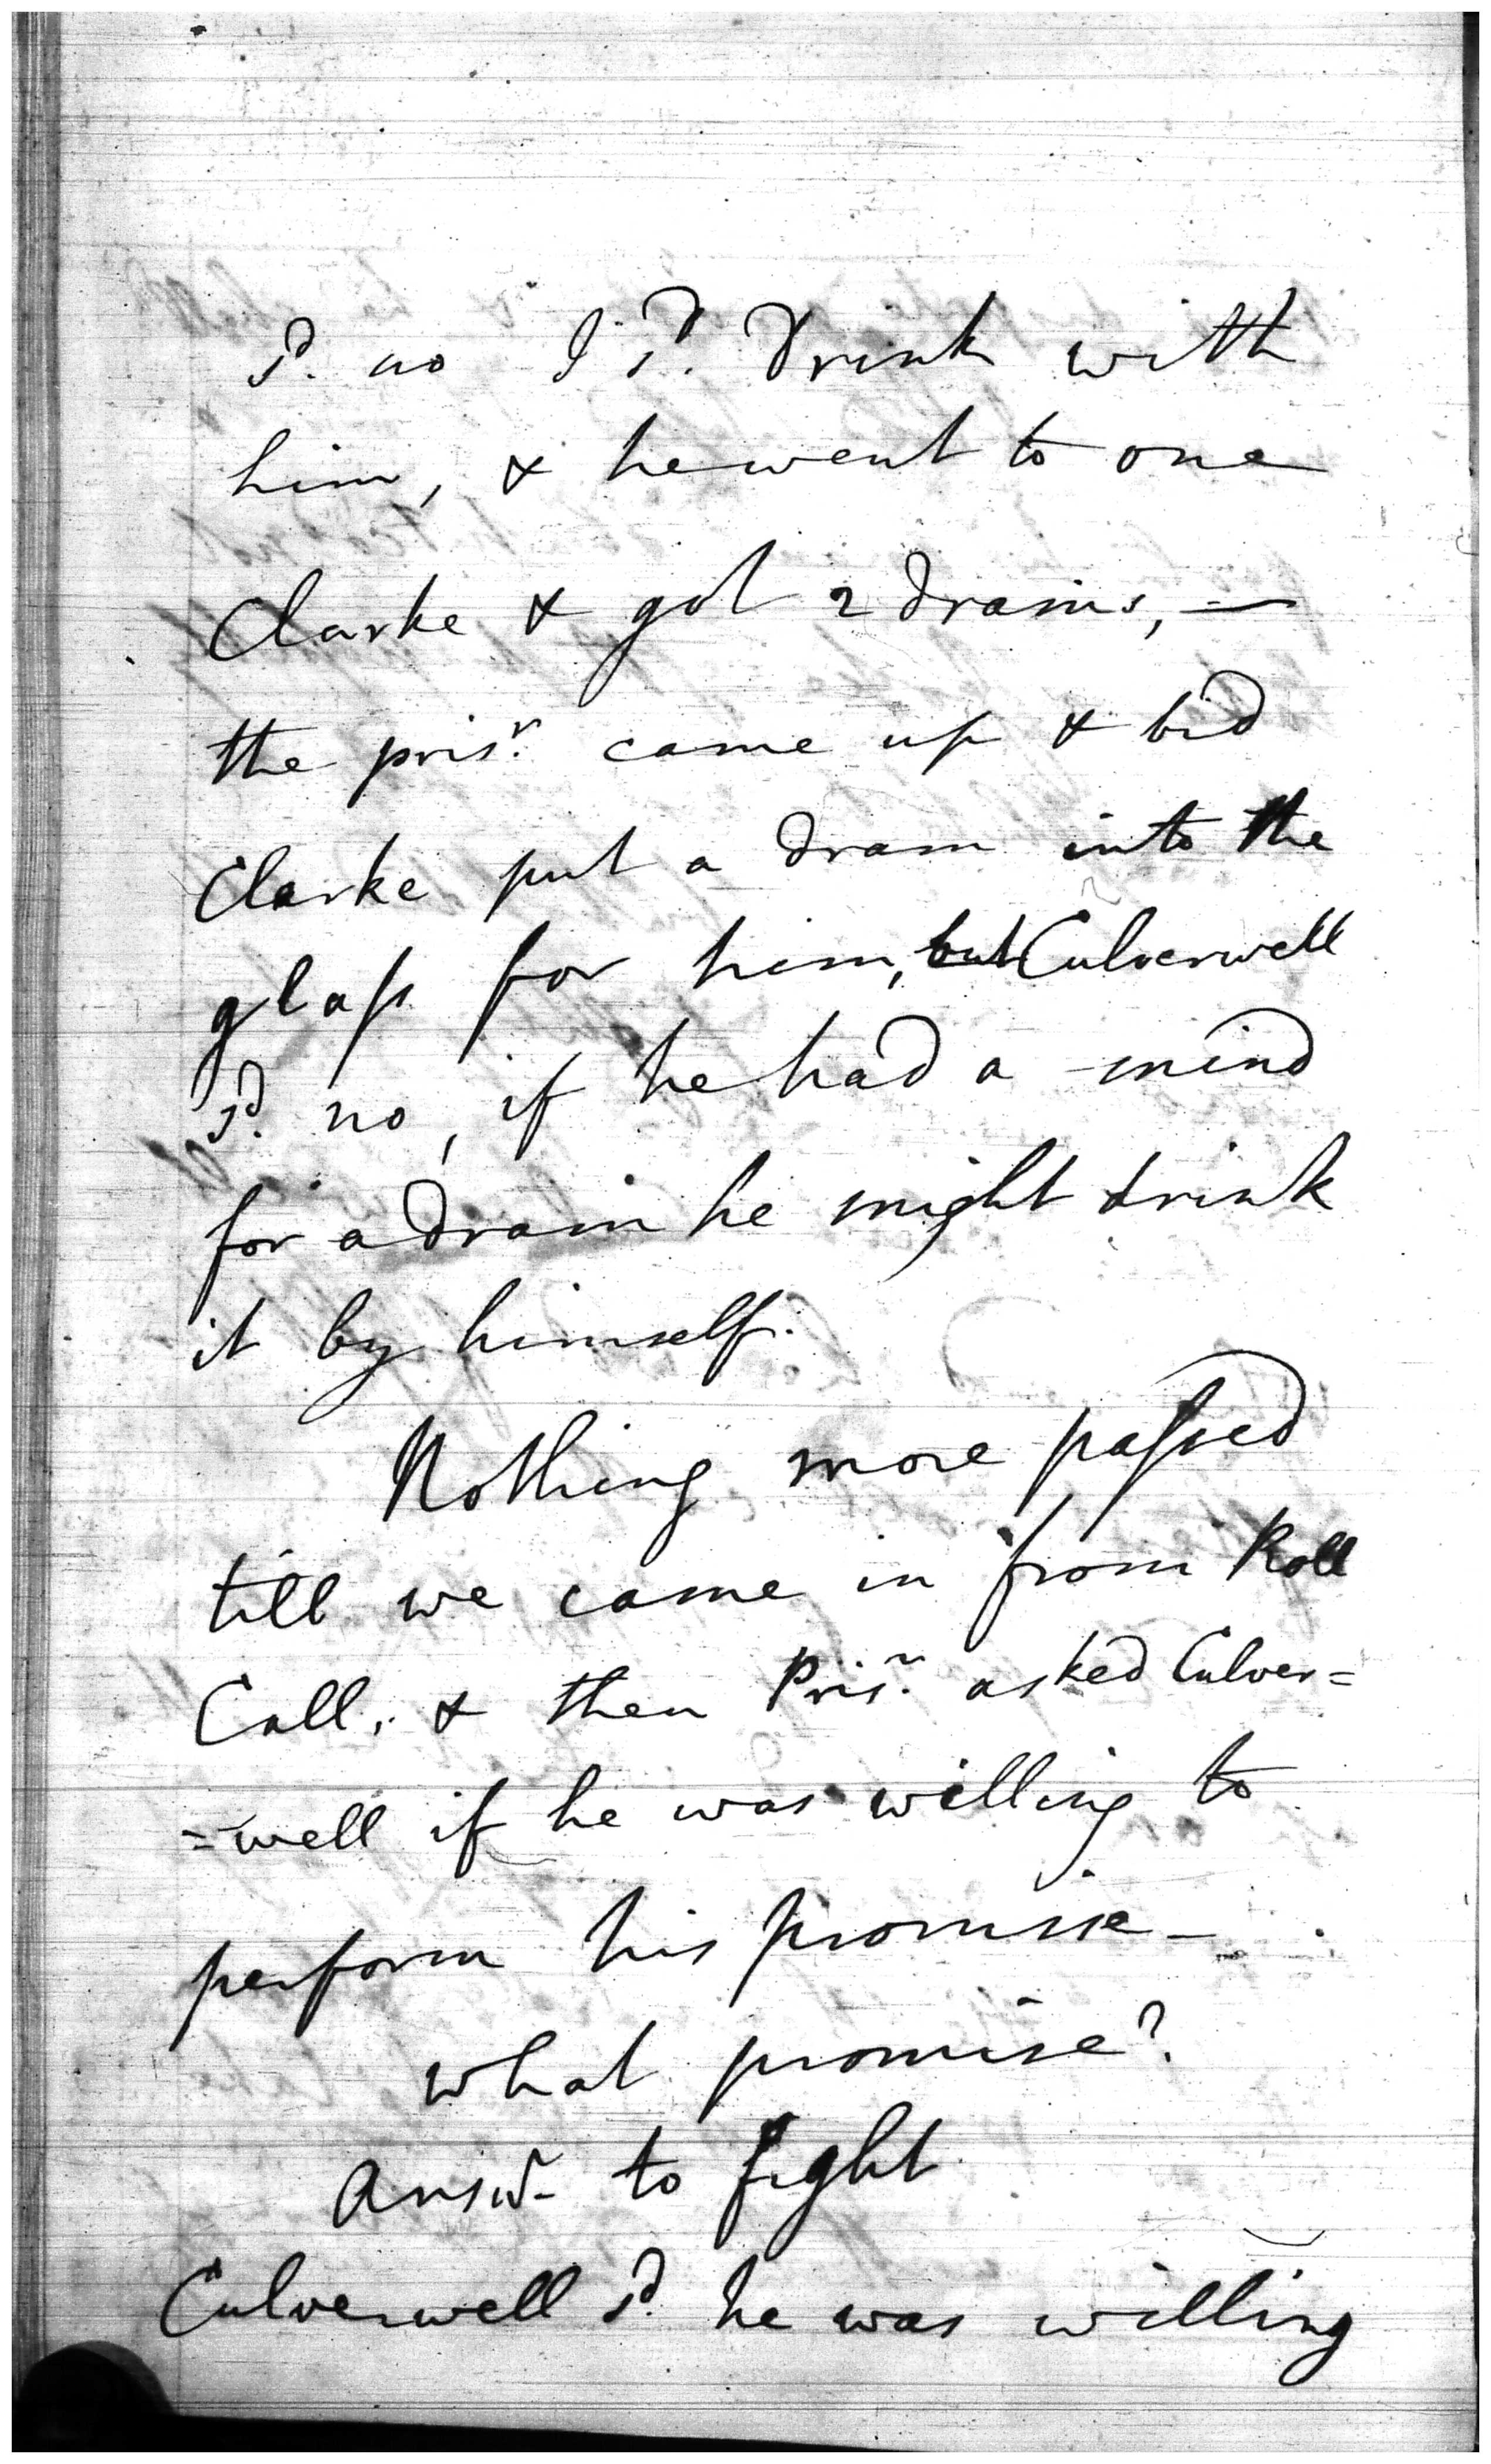 sd. no I sd. Drink with
him, & he went to one
Clarke & got 2 drams, —
the prisr. came up & bid
Clarke put a dram into the
glass for him, but Culverwell
sd. no, if he had a mind
for a dram he might drink
it by himself.
Nothing more passed
till we came in from Roll
Call, & then Prisr. asked Culver=
=well if he was willing to
perform his promise —
what promise?
Answr. to fight
Culverwell sd. he was willing